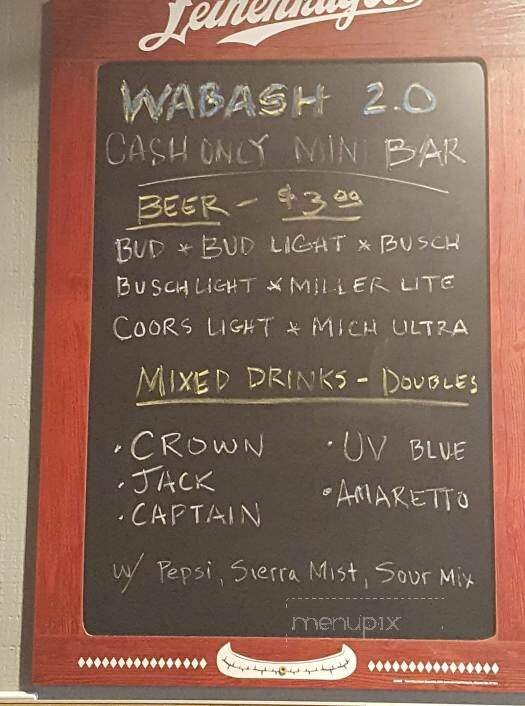 Leinenkugel's
WABASH 2.0
CASH ONLY MINI BAR
BEER - $3.00
BUD * BUD LIGHT * BUSCH
BUSCH LIGHT * MILLER LITE
COORS LIGHT * MICH ULTRA
MIXED DRINKS - DOUBLES
• CROWN • UV BLUE
• JACK • AMARETTO
• CAPTAIN
w/ Pepsi, Sierra Mist, Sour Mix
menupix